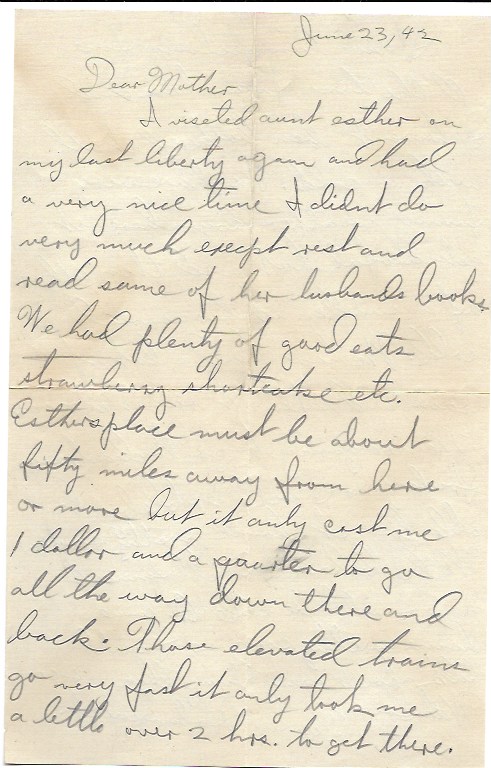 June 23, 42
Dear Mother
I viseted aunt esther on
my last liberty again and had
a very nice time I didnt do
very much except rest and
read some of her husbands books.
We had plenty of good eats
strawberry shortcake etc.
Esthers place must be about
fifty miles away from here
or more but it only cost me
1 dollar and a quarter to go
all the way down there and
back. Those elevated trains
go very fast it only took me
a little over 2 hrs. to get there.